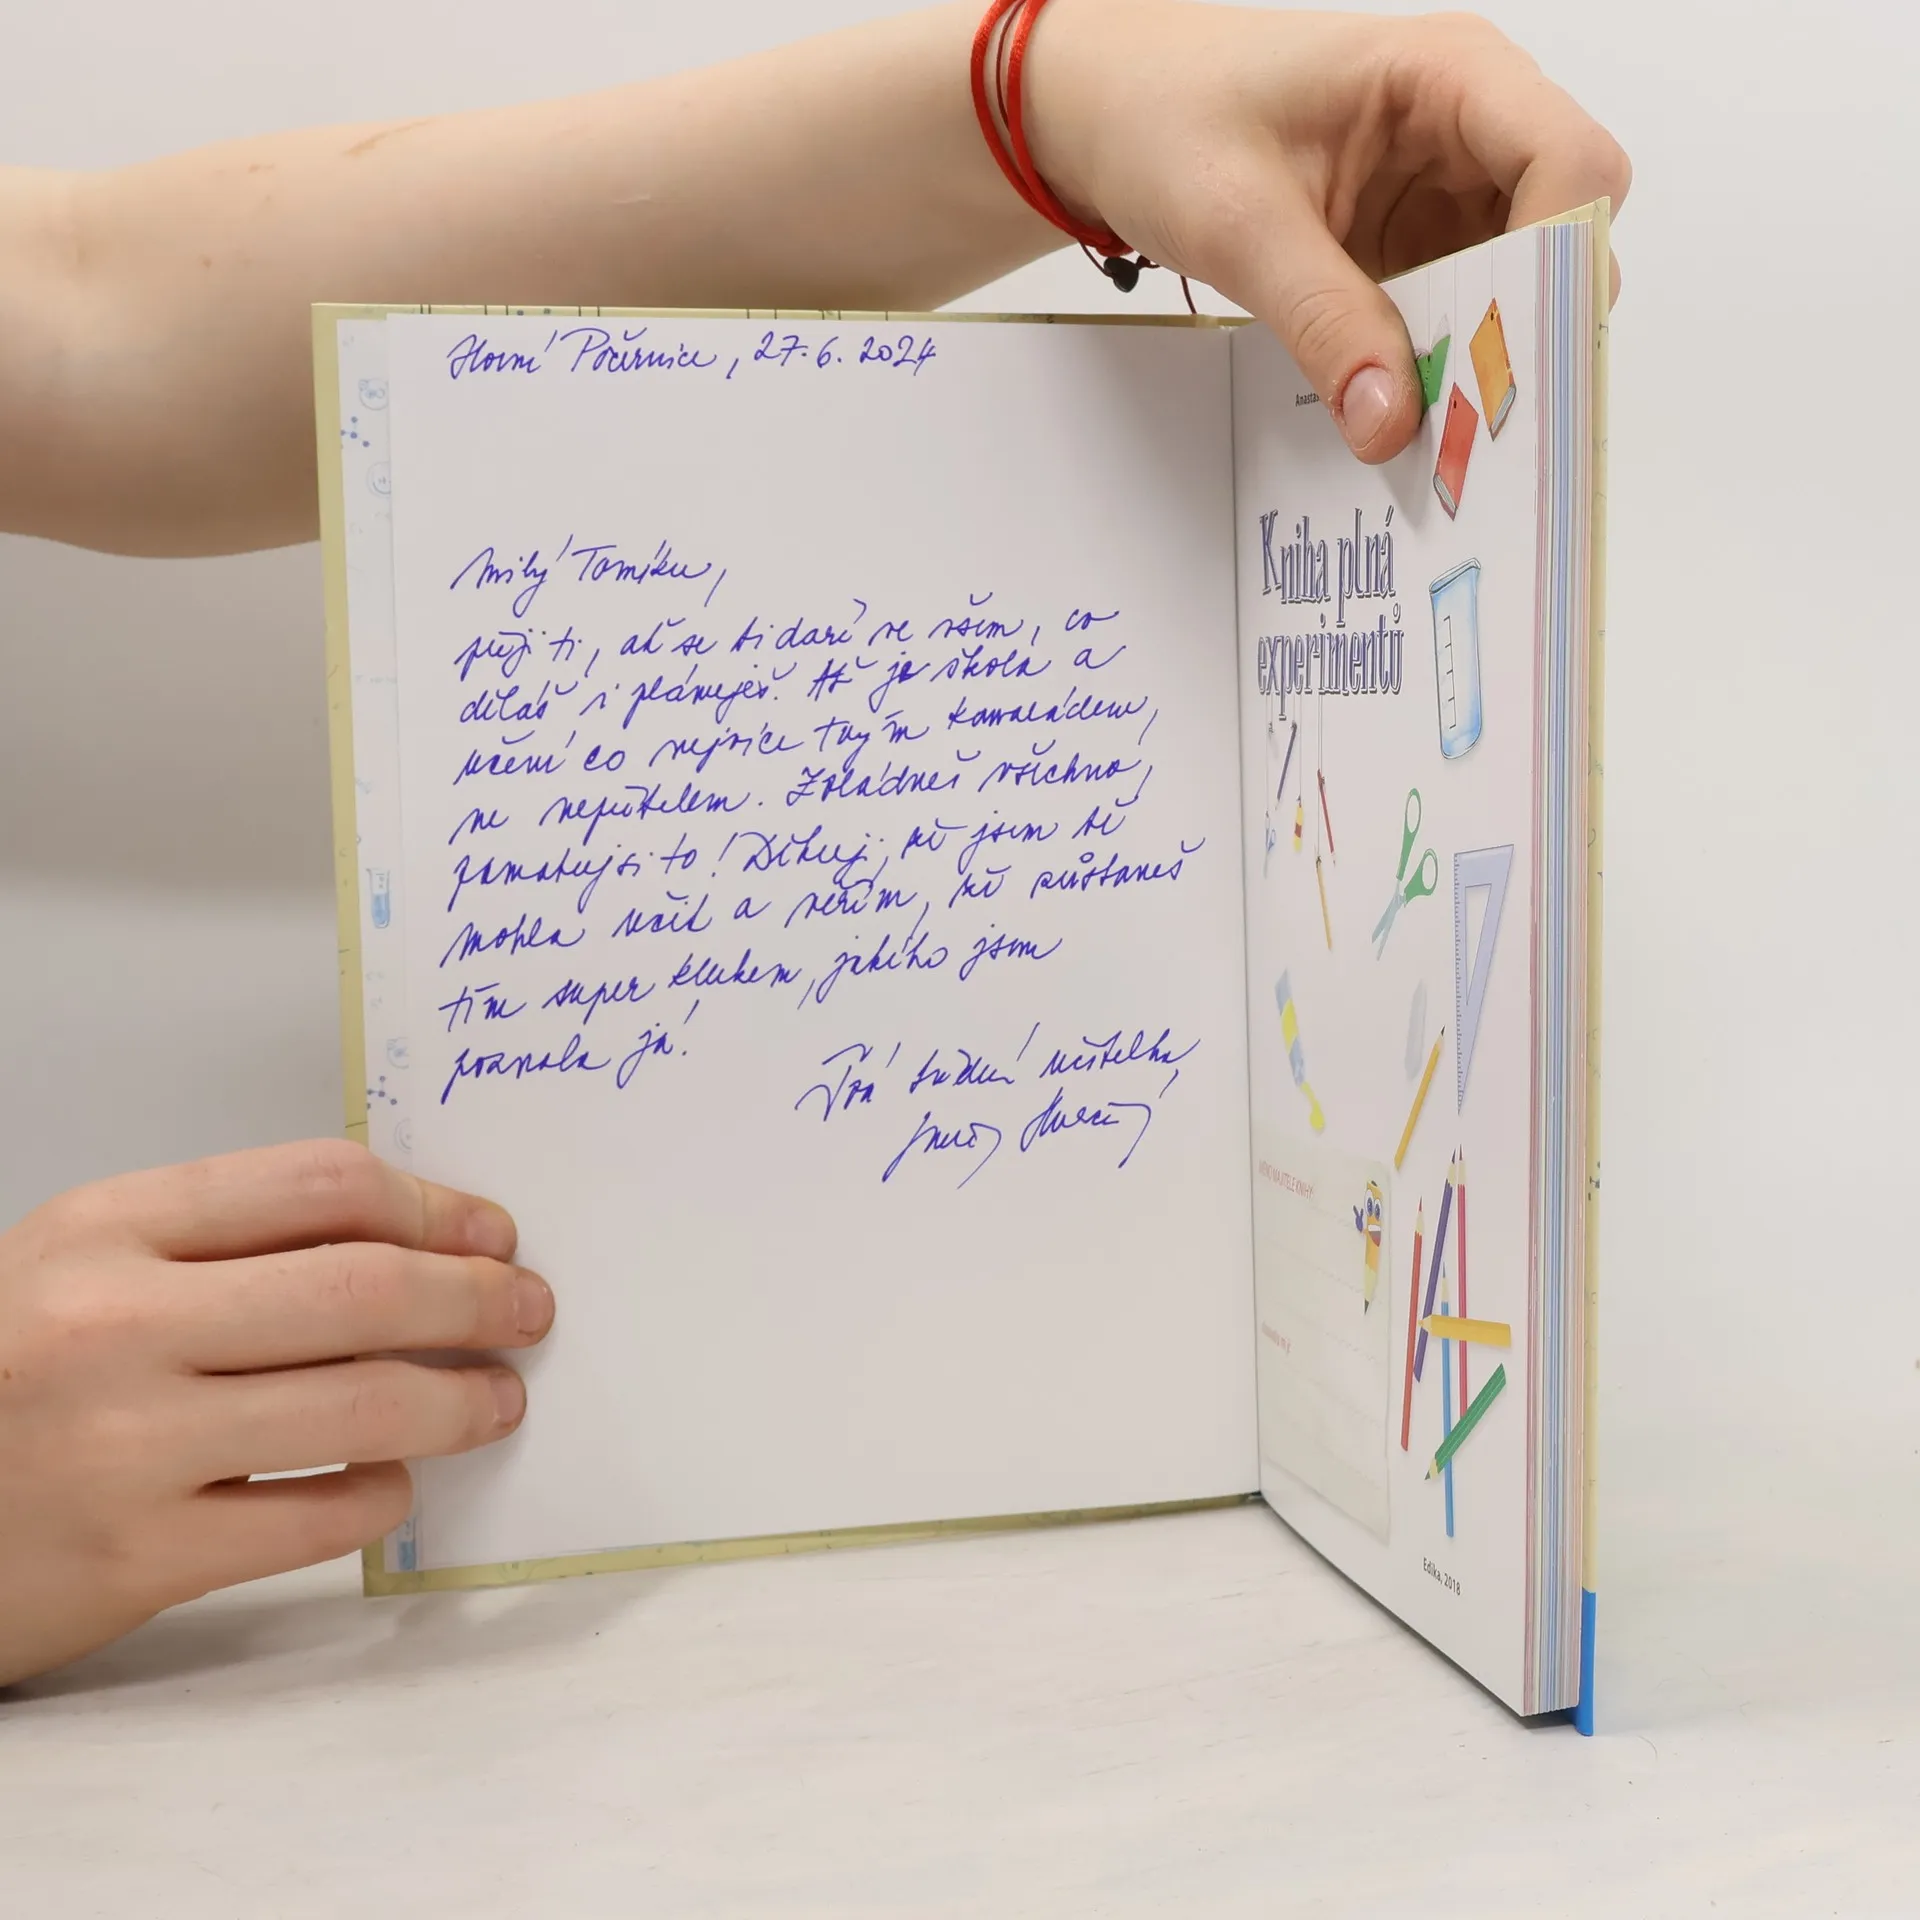 Horní Počernice, 27. 6. 2024
Milý Tomíku,
přeji ti, ať se ti daří ve všem, co
děláš i plánuješ. Ať je škola a
učení co nejvíce tvým kamarádem,
ne nepřítelem. Zvládneš všechno,
pamatuj si to! Děkuji, že jsem tě
mohla učit a věřím, že zůstaneš
tím super klukem, jakého jsem
poznala já!
Tvá třídní učitelka,
Kniha plná
experimentů
JMÉNO MAJITELE KNIHY:
Edika, 2018